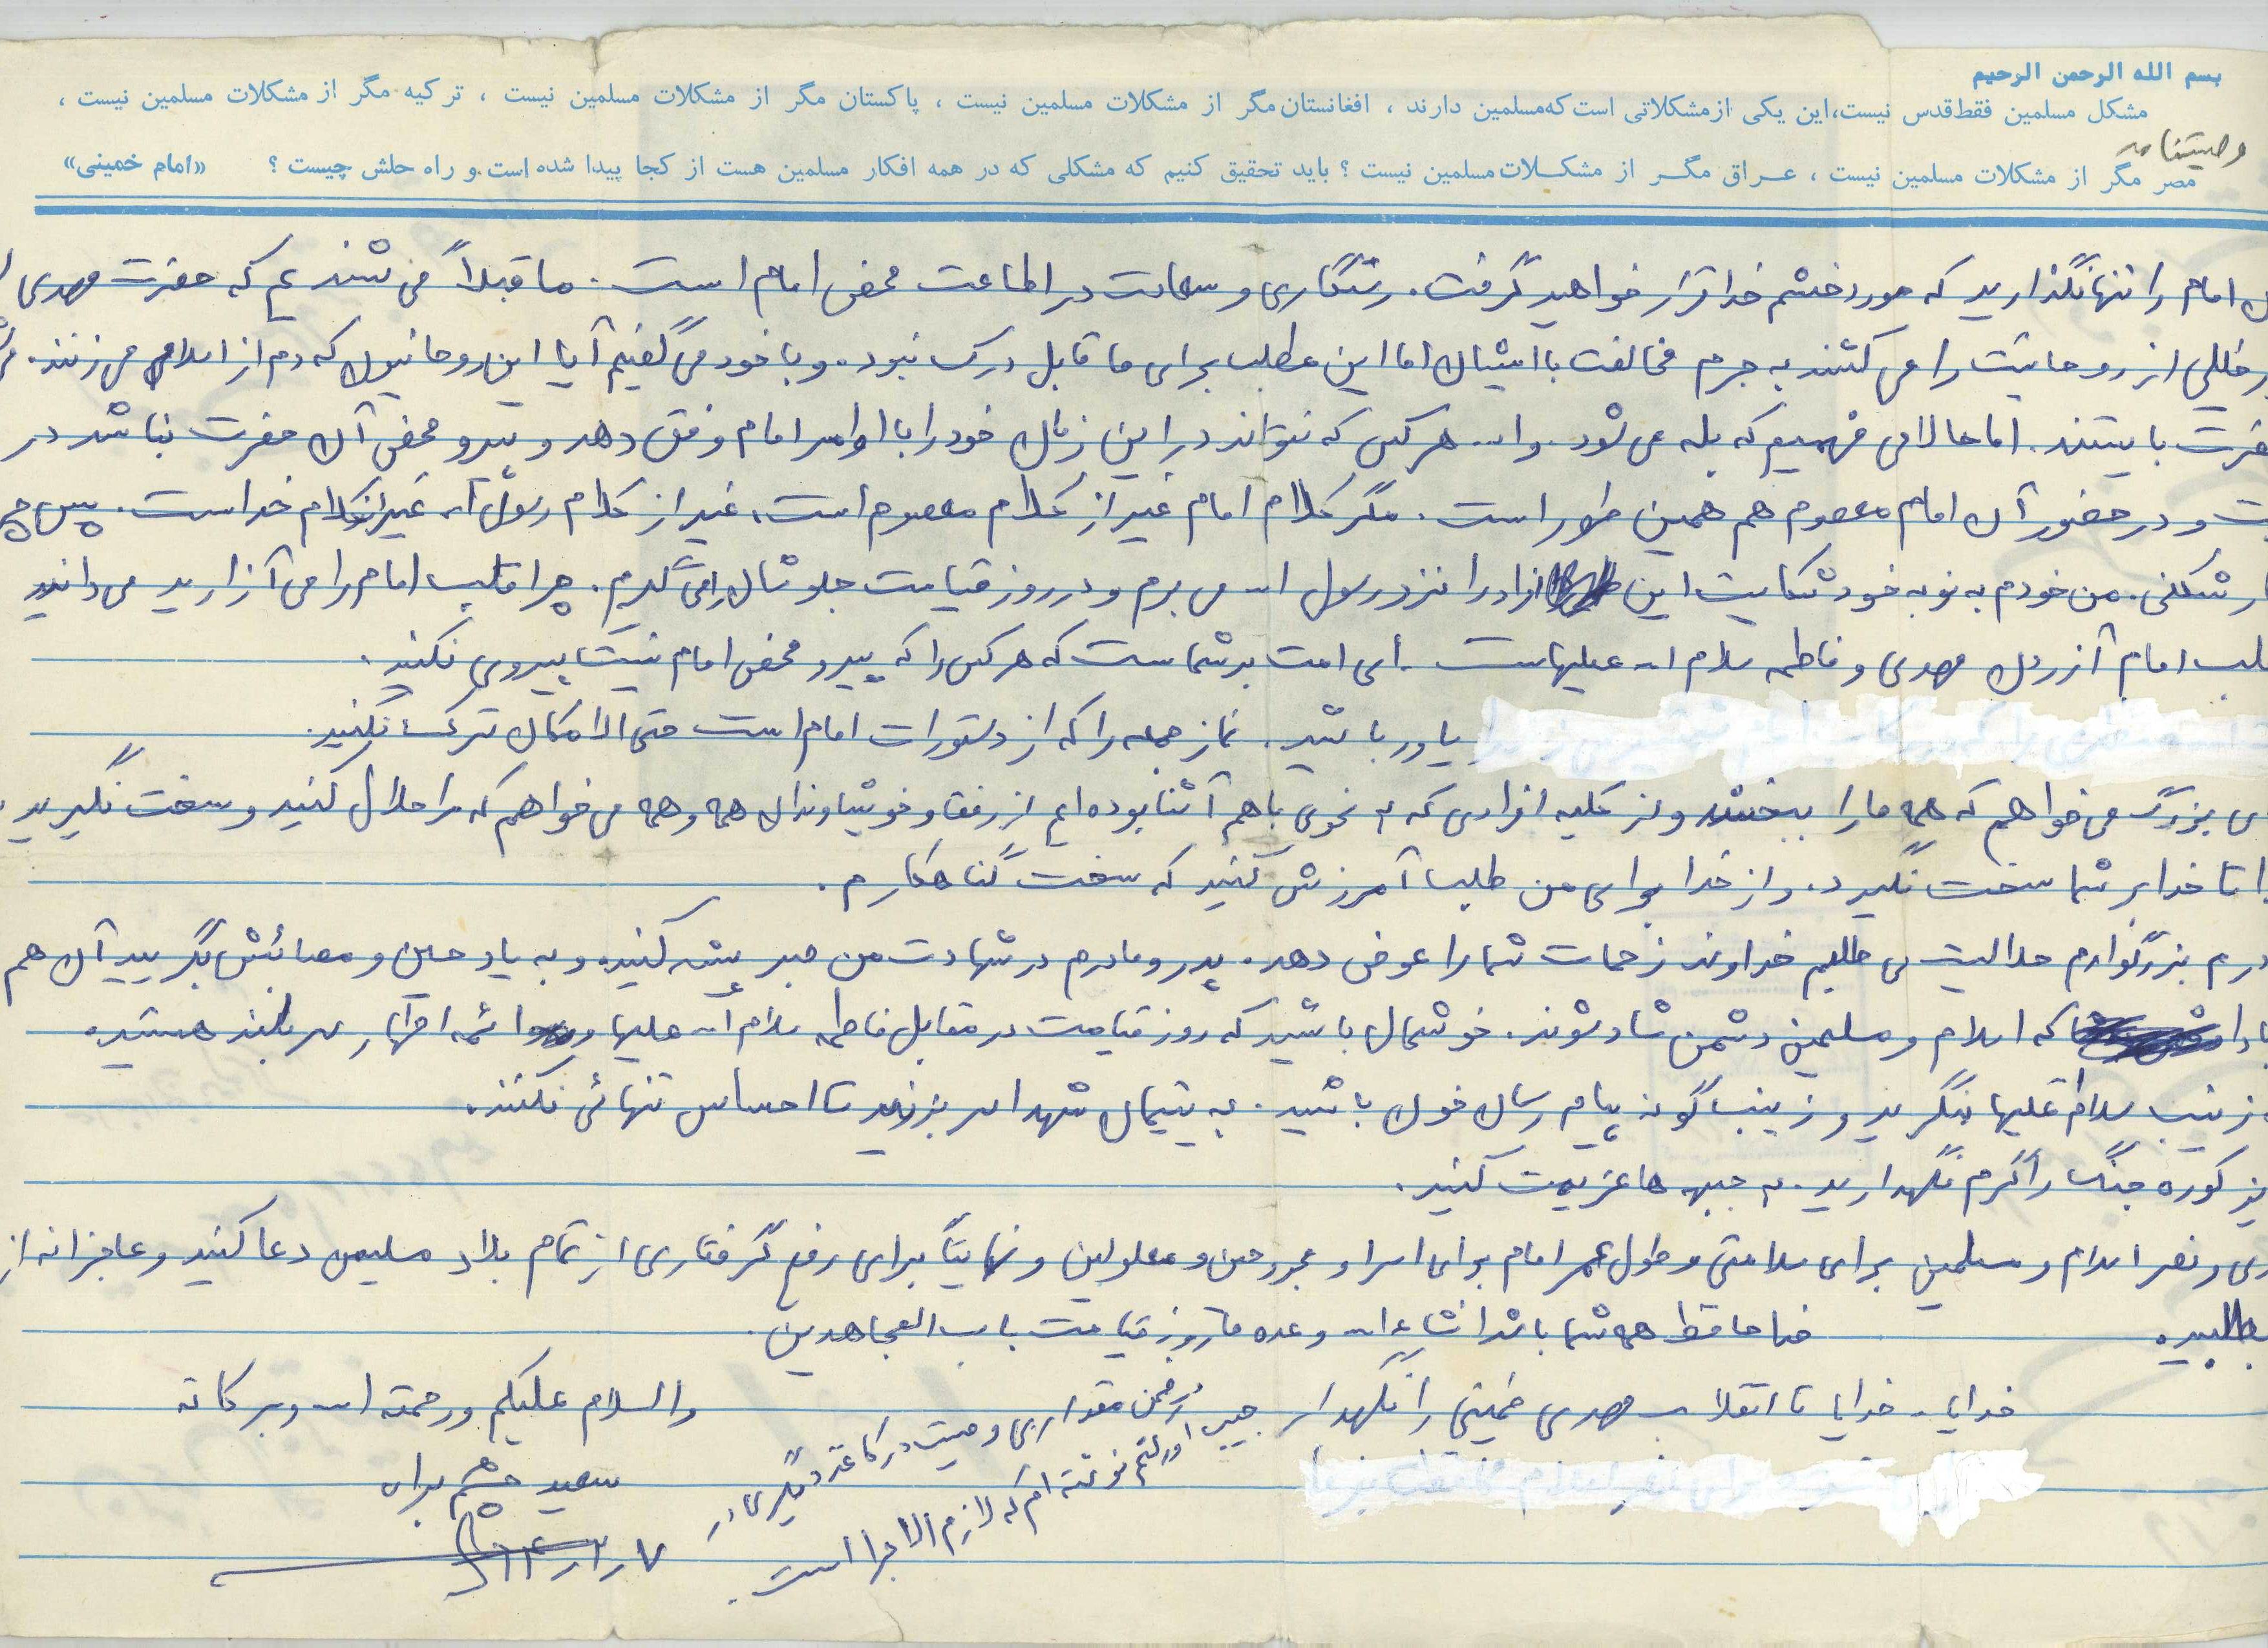 بسم الله الرحمن الرحیم
مشکل مسلمین فقط قدس نیست، این یکی از مشکلاتی است که مسلمین دارند ، افغانستان مگر از مشکلات مسلمین نیست ، پاکستان مگر از مشکلات مسلمین نیست ، ترکیه مگر از مشکلات مسلمین نیست ،
وصیتنامه
مصر مگر از مشکلات مسلمین نیست ، عراق مگر از مشکلات مسلمین نیست ؟ باید تحقیق کنیم که مشکلی که در همه افکار مسلمین هست از کجا پیدا شده است و راه حلش چیست ؟ «امام خمینی»
امام را تنها نگذارید که مورد خشم خدا قرار خواهید گرفت. رستگاری و سعادت در اطاعت محض امام است. ما قبلاً می شنیدیم که حضرت مهدی
خیلی از روحانیت را می کشند به جرم مخالفت با ایشان اما این مطلب برای ما قابل درک نبود. و با خود می گفتیم آیا این روحانیون که دم از اسلام می زنند.
حضرت بایستند. اما حالا می فهمیم که بله می شود. والله هر کس که نتواند در این زمان خود را با اوامر امام وفق دهد و پیرو محض آن حضرت نباشد در
و در حضور آن امام معصوم هم همین طور است. مگر کلام امام غیر از کلام معصوم است، غیر از کلام رسول الله غیر از کلام خداست. پس
شکنی. من خودم به نوبه خود شکایت این افراد را نزد رسول الله می برم و در روز قیامت جلوشان را می گیرم. چرا قلب امام را می آزارید می دانید
قلب امام آزردن مهدی و فاطمه سلام الله علیهاست. ای امت بر شماست که هر کس را که پیرو محض امام نیست پیروی نکنید.
یاور باشید. نماز جمعه را که از دستورات امام است حتی الامکان ترک نکنید.
بزرگ می خواهم که همه ما را ببخشد و از کلیه افرادی که به نحوی با هم آشنا بوده ایم از رفقا و خویشاوندان همه و همه می خواهم که مرا حلال کنید و سخت نگیرید.
تا خدا بر شما سخت نگیرد. و از خدا برای من طلب آمرزش کنید که سخت گناهکارم.
بزرگوارم حلالیت می طلبم خداوند زحمات شما را عوض دهد. پدر و مادرم در شهادت من صبر پیشه کنید. و به یاد حسین و مصائبش بگریید آن هم
که اسلام و مسلمین دشمن شاد شوند. خوشحال باشید که روز قیامت در مقابل فاطمه سلام الله علیها و ائمه اطهار سربلند هستید.
زینب سلام الله علیها بنگرید و زینب گونه پیام رسان خون باشید. به یتیمان شهدا سر بزنید تا احساس تنهائی نکنند.
کوره جنگ را گرم نگهدارید. به جبهه ها عزیمت کنید.
و نصر اسلام و مسلمین برای سلامتی و طول عمر امام برای اسرا و مجروحین و معلولین و نهایتاً برای رفع گرفتاری از تمام بلاد مسلیمن دعا کنید و عاجزانه از
بطلبید. خدا حافظ همه شما باشد انشاءالله وعده ما روز قیامت باب المجاهدین.
خدایا - خدایا تا انقلاب مهدی خمینی را نگهدار
والسلام علیکم ورحمته الله وبرکاته
در ضمن مقداری وصیت در کاغذ دیگری در جیب اورکتم نوشته ام که لازم الاجرا است.
سعید چشم براه